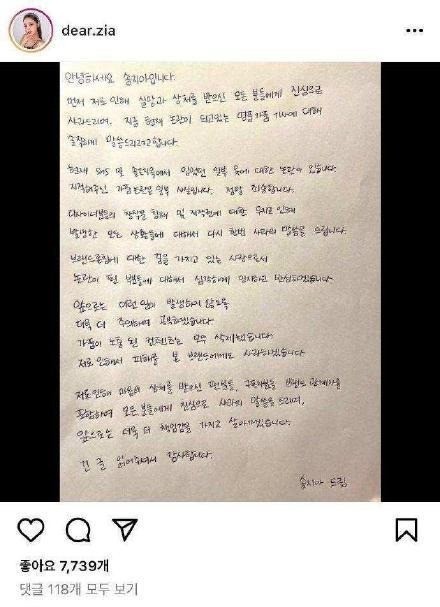 dear.zia
안녕하세요 송지아입니다.
먼저 저로 인해 실망과 상처를 받으신 모든 분들에게 진심으로
사과드리며, 지금 현재 논란이 되고있는 명품가품 기사에 대해
솔직하게 말씀드리려고합니다.
현재 SNS 및 솔로지옥에서 입었던 일부 옷에 대한 논란이 있습니다.
지적해주신 가품논란은 일부 사실입니다. 정말 죄송합니다.
디자이너분들의 창작물 침해 및 저작권에 대한 무지로 인해
발생한 모든 상황들에 대해서 다시 한번 사과의 말씀을 드립니다.
브랜드론칭에 대한 꿈을 가지고 있는 사람으로서
논란이 된 부분들에 대해서 심각하게 인지하고 반성하겠습니다
앞으로는 이런 일이 발생하지 않도록
더욱 더 주의하며 공부하겠습니다
가품이 노출 된 컨텐츠는 모두 삭제했습니다.
저로 인해서 피해를 본 브랜드에게도 사과하고싶습니다
저로인해 마음의 상처를 받으신 팬분들, 구독자분들 브랜드 관계자를
포함하여 모든 분들에게 진심으로 사과의 말씀을 드리며,
앞으로는 더욱 더 책임감을 가지고 살아가겠습니다.
긴 글 읽어주셔서 감사합니다.
송지아 드림
좋아요 7,739개
댓글 118개 모두 보기